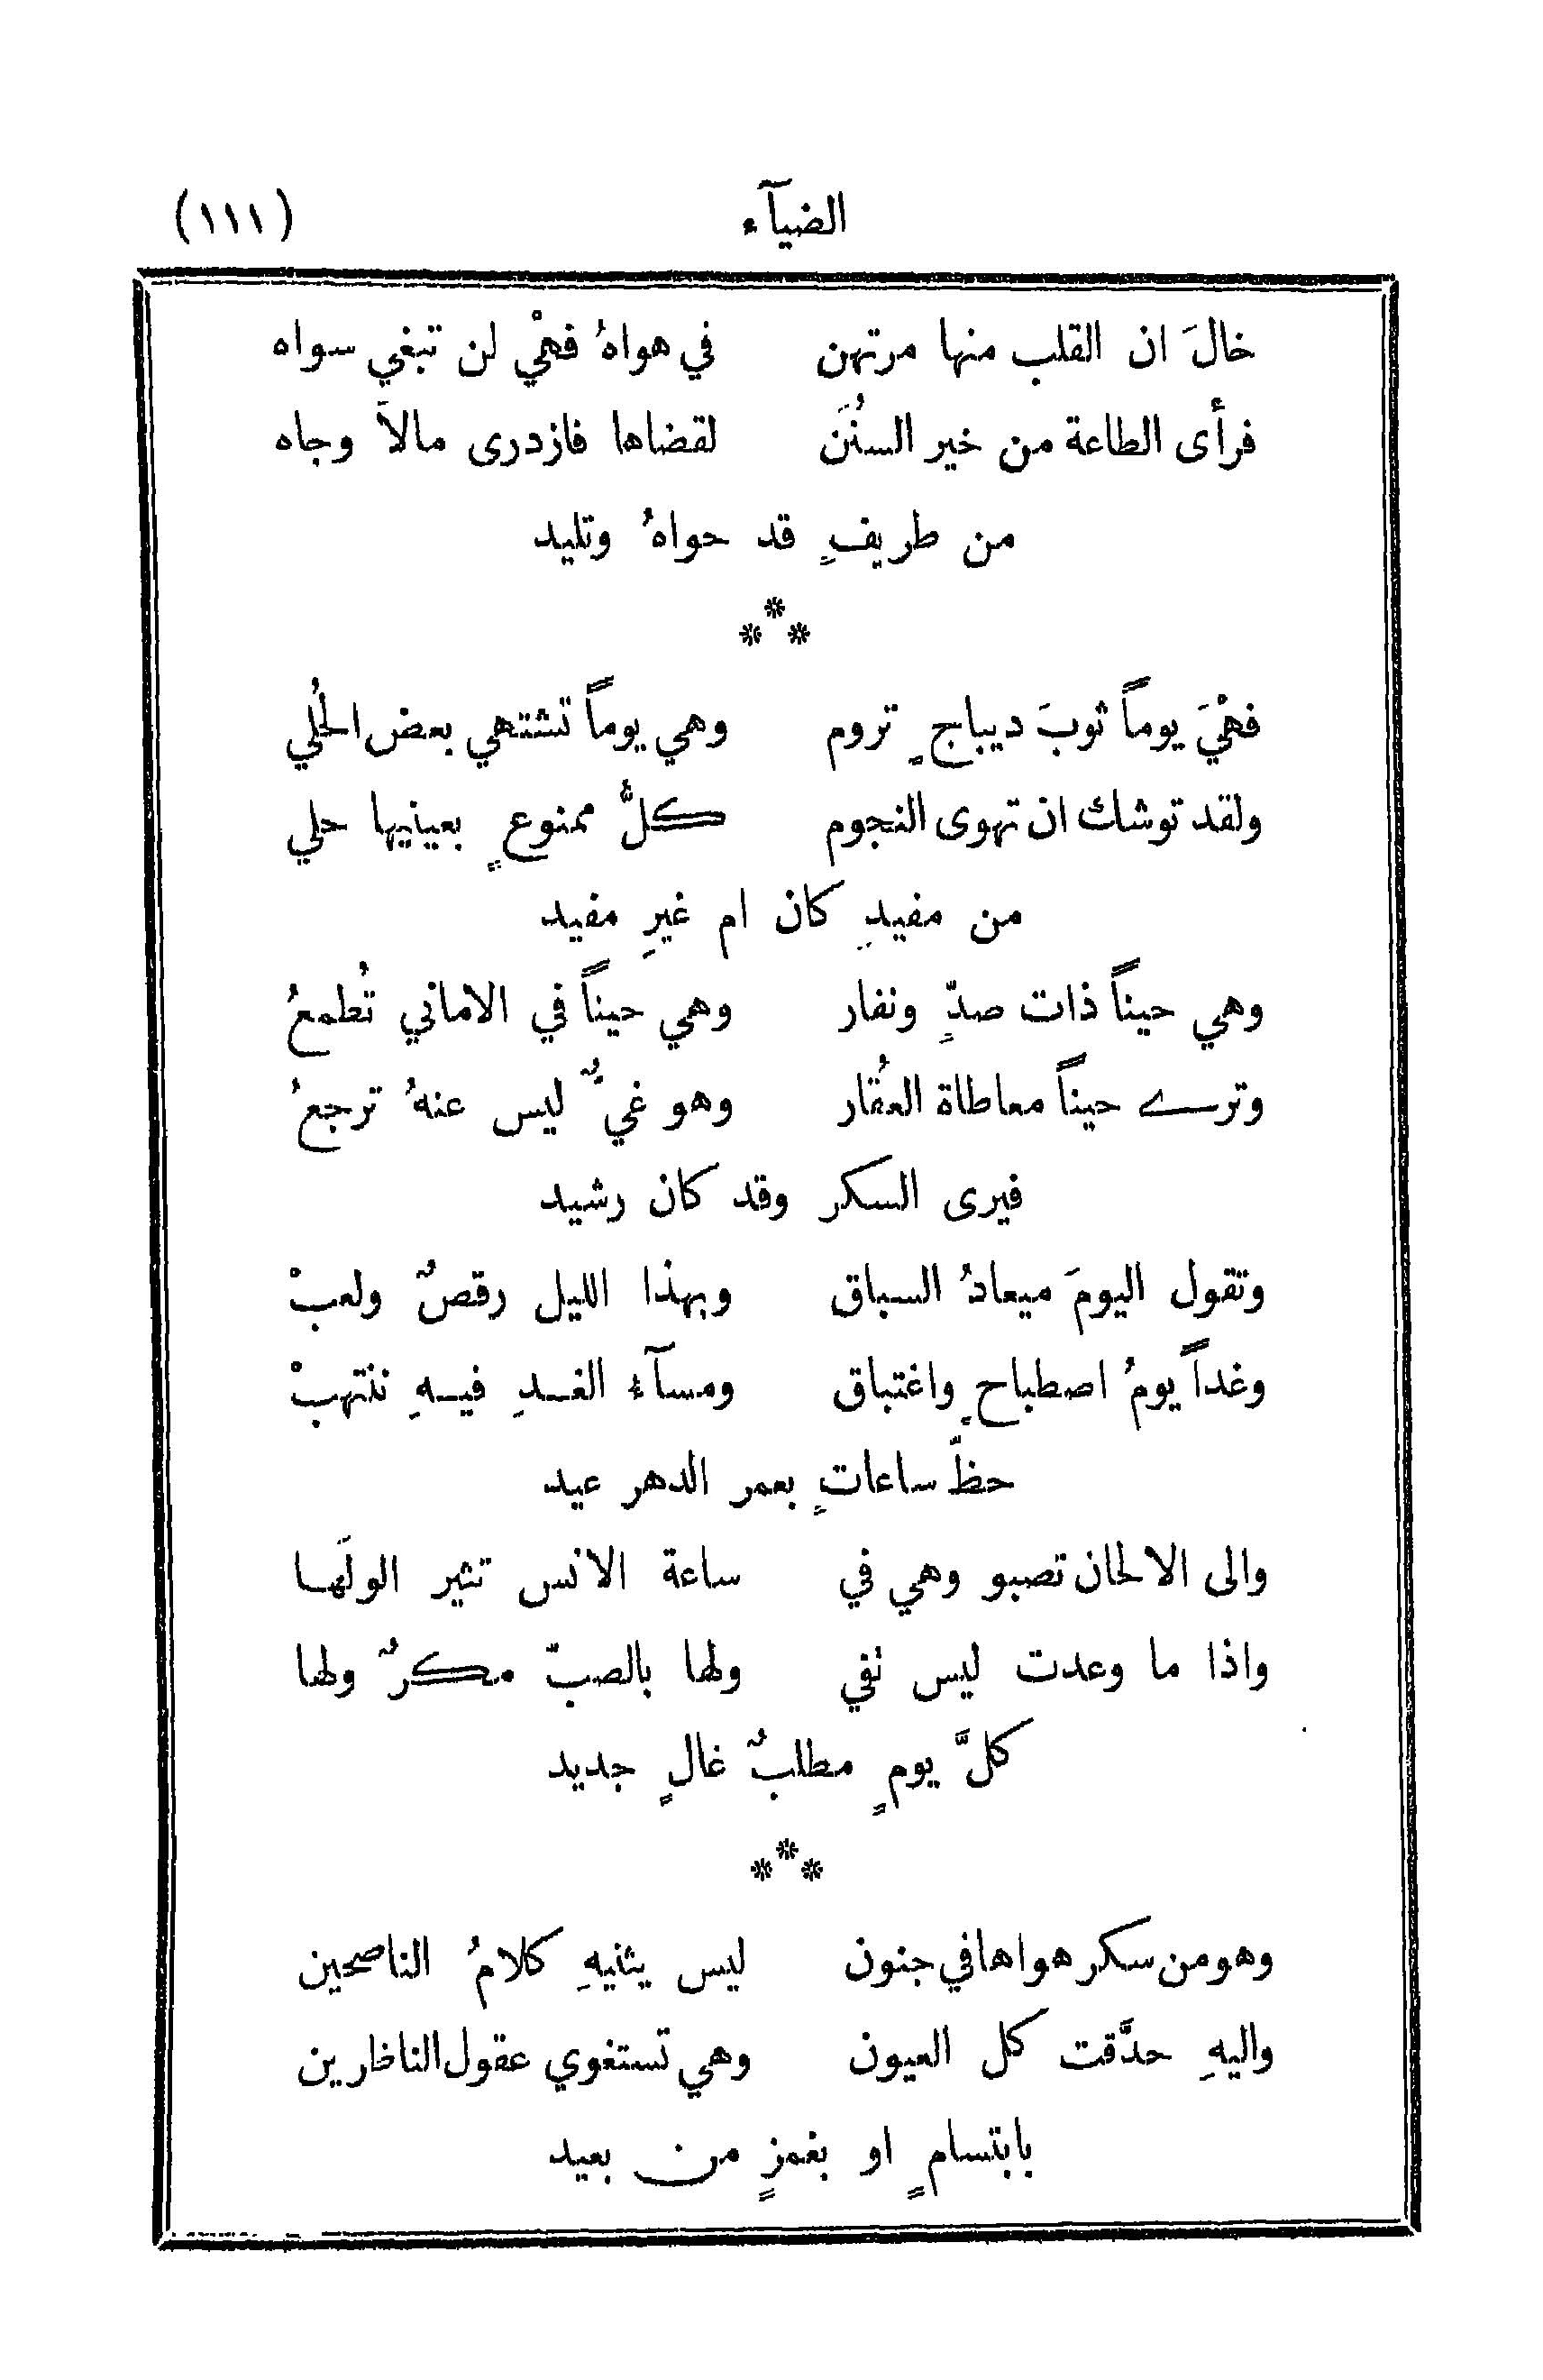 الضيآء (١١١)
خالَ ان القلب منها مرتهن في هواهُ فهْي لن تبغي سواه
فرأى الطاعة من خير السنُنَ لقضاها فازدرى مالاً وجاه
من طريفٍ قد حواهُ وتليد
***
فهْيَ يوماً ثوبَ ديباجٍ تروم وهي يوماً تشتهي بعض الحُلي
ولقد توشك ان تهوى النجوم كلُّ ممنوعٍ بعينيها حلي
من مفيدٍ كان ام غيرِ مفيد
وهي حيناً ذات صدٍّ ونفار وهي حيناً في الاماني تُطمعُ
وترے حيناً معاطاة العُقار وهو غيٌّ ليس عنهُ ترجعُ
فيرى السكر وقد كان رشيد
وتقول اليومَ ميعادُ السباق وبهذا الليل رقصٌ ولعبْ
وغداً يومُ اصطباحٍ واغتباق ومسآءُ الغـدِ فيـهِ ننتهبْ
حظّ ساعاتٍ بعمر الدهر عيد
والى الالحان تصبو وهي في ساعة الانس تثير الولَهـا
واذا ما وعدت ليس نفي ولها بالصبّ مكرٌ ولها
كلَّ يومٍ مطلبٌ غالٍ جديد
***
وهو من سكر هواها في جنون ليس يثنيهِ كلامُ الناصحين
واليهِ حدَّقت كل العيون وهي تستغوي عقول الناظرين
بابتسامٍ او بغمزٍ من بعيد